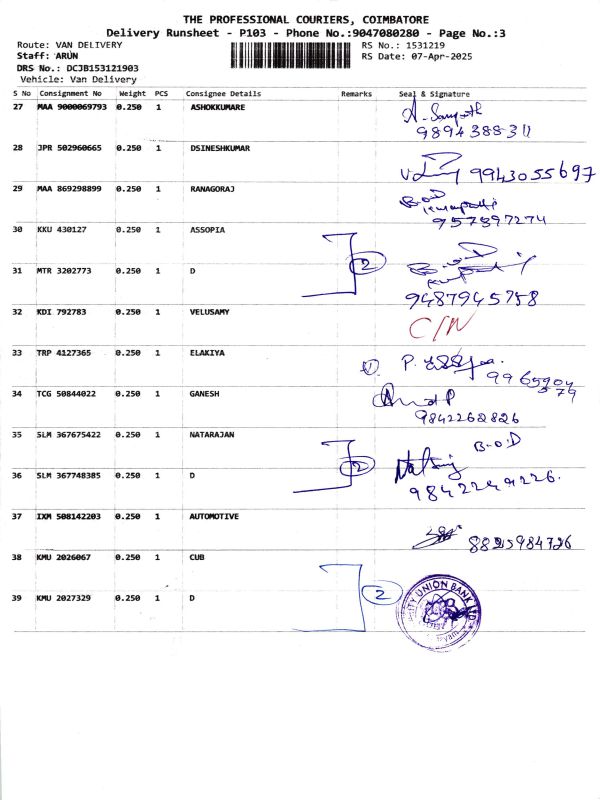 THE PROFESSIONAL COURIERS, COIMBATORE
Delivery Runsheet - P103 - Phone No.:9047080280 - Page No.:3
Route: VAN DELIVERY RS No.: 1531219
Staff: ARUN RS Date: 07-Apr-2025
DRS No.: DCJB153121903
Vehicle: Van Delivery
S No Consignment No Weight PCS Consignee Details Remarks Seal & Signature
27 MAA 9000069793 0.250 1 ASHOKKUMARE
9894388311
28 JPR 502960665 0.250 1 DSINESHKUMAR
9943055697
29 MAA 869298899 0.250 1 RANAGORAJ
957397274
30 KKU 430127 0.250 1 ASSOPIA
2
31 MTR 3202773 0.250 1 D
9487945758
32 KDI 792783 0.250 1 VELUSAMY
C/N
33 TRP 4127365 0.250 1 ELAKIYA
34 TCG 50844022 0.250 1 GANESH
9842262826
35 SLM 367675422 0.250 1 NATARAJAN
B-O-D
2
36 SLM 367748385 0.250 1 D
37 IXM 508142203 0.250 1 AUTOMOTIVE
8825984726
38 KMU 2026067 0.250 1 CUB
2
39 KMU 2027329 0.250 1 D
CITY UNION BANK LTD